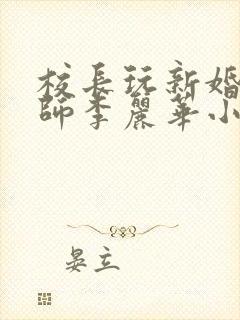 校長玩新婚
師李麗華小
晏立